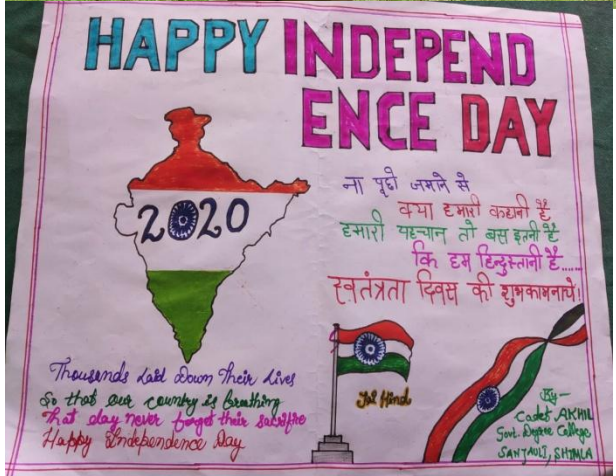 HAPPY INDEPEND
ENCE DAY
2020
ना पूछो जमाने से
क्या हमारी कहानी है
हमारी पहचान तो बस इतनी है
कि हम हिन्दुस्तानी है......
स्वतंत्रता दिवस की शुभकामनाये!
Thousends Laid Down Their Lives
So that our country is breathing
That day never forget their sacrifice
Happy Independence Day
Jai Hind
By—
Cadet AKHIL
Govt. Degree College
SANJAULI, SHIMLA